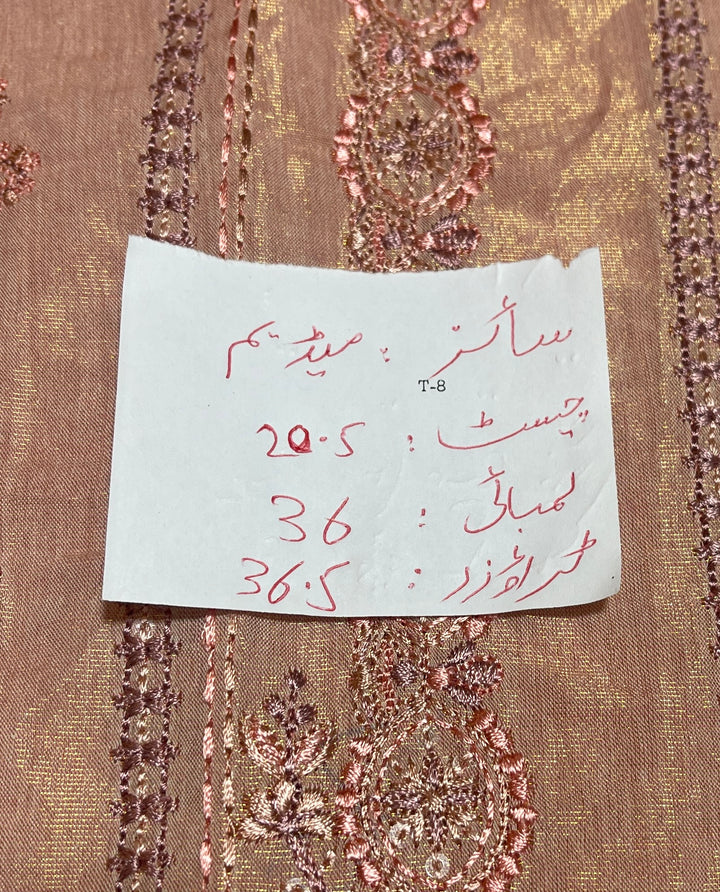 سائز : میڈیم
T-8
چسٹ : 20.5
لمبائی : 36
ٹراؤزر : 36.5